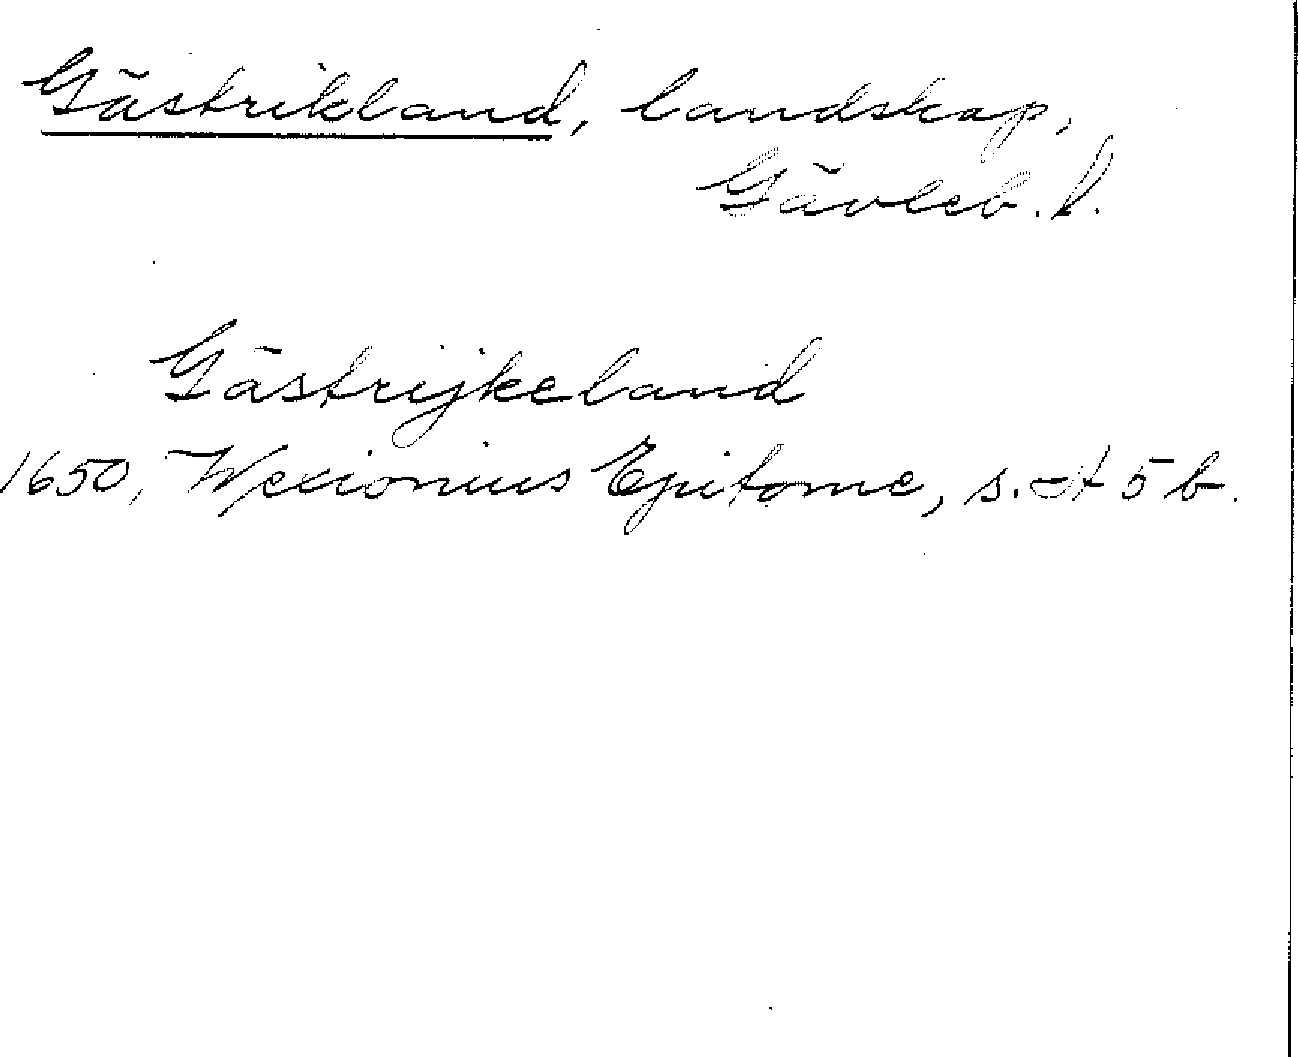 Gästrikland, landskap,
Gävleb. l.
Gästrijkeland
1650, Wexionius Epitome, s. A 5 b.